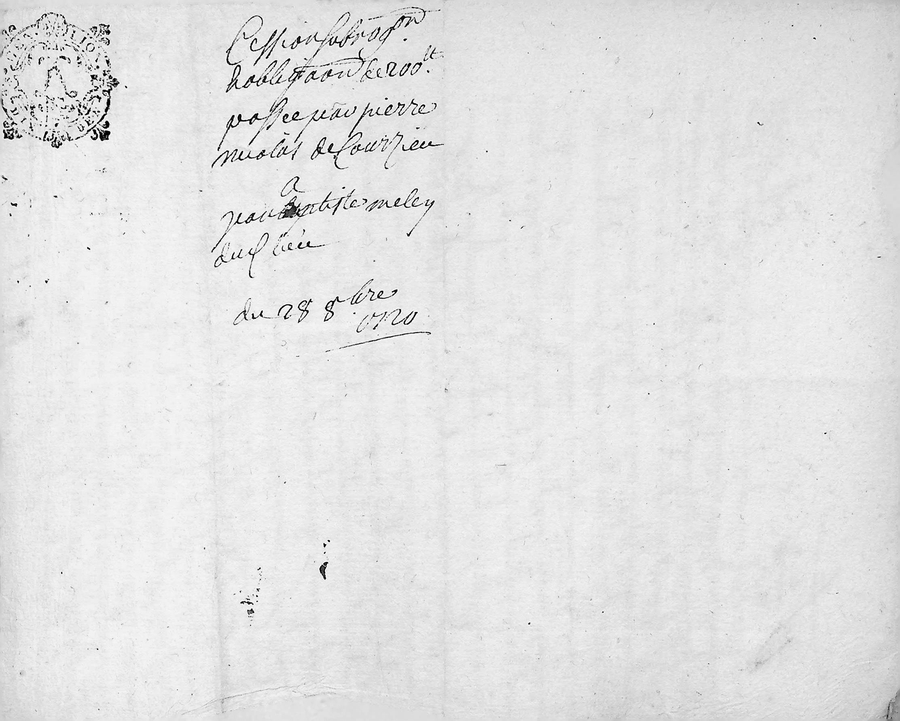 Cession subrog.on
& obligaon de 200 lt
passée par pierre
nicolas de Courzieu
a
Jean baptiste meley
dud lieu
du 28 8bre
1720